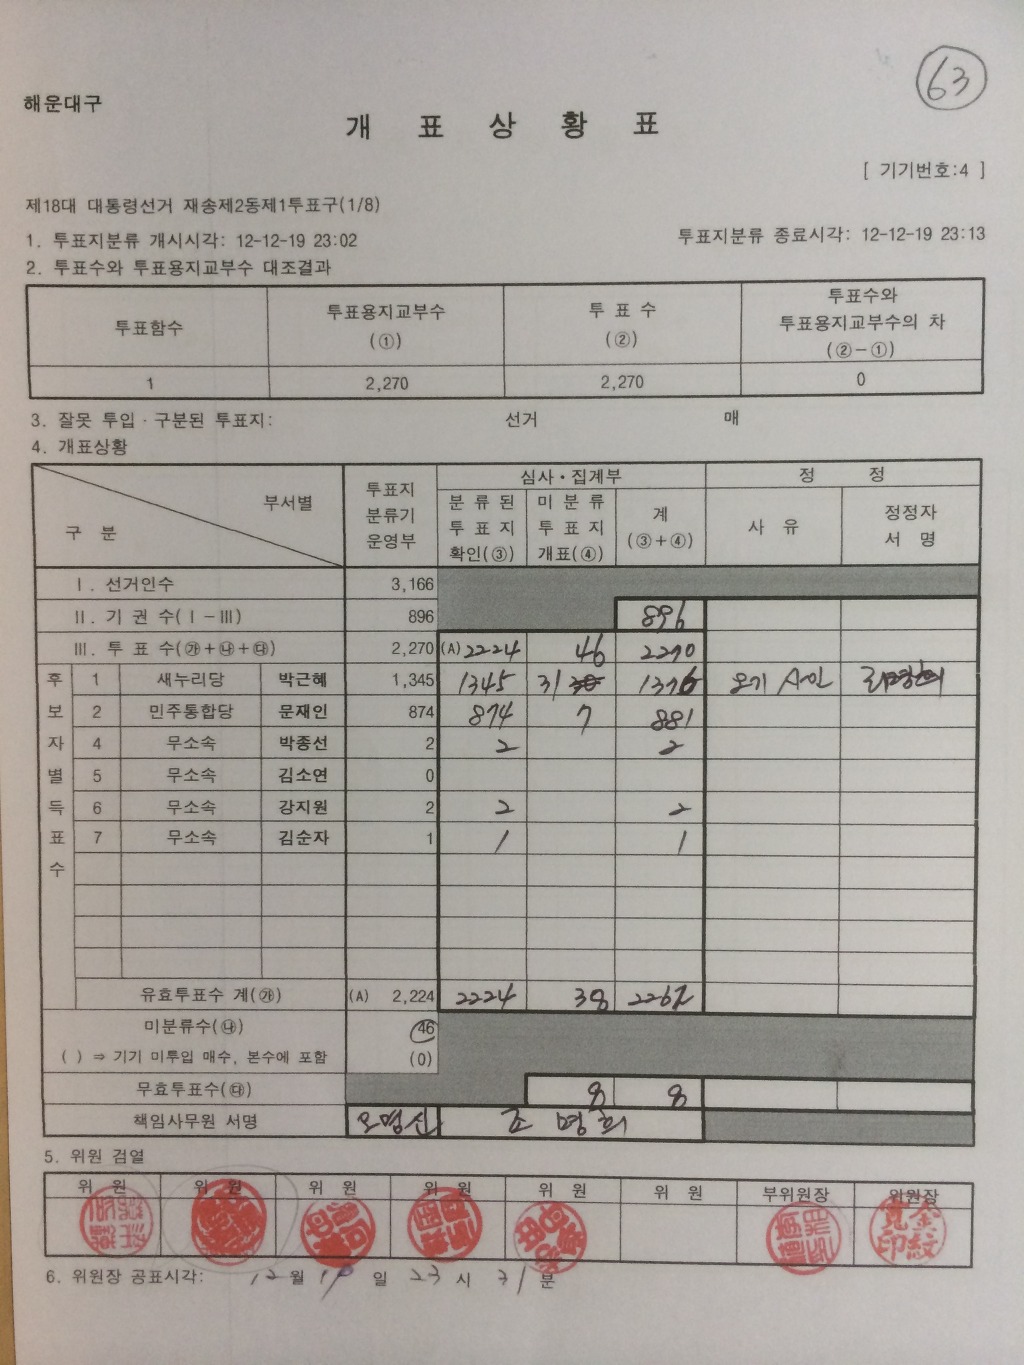 63
해운대구
개 표 상 황 표
[ 기기번호:4 ]
제18대 대통령선거 재송제2동제1투표구(1/8)
1. 투표지분류 개시시각: 12-12-19 23:02 투표지분류 종료시각: 12-12-19 23:13
2. 투표수와 투표용지교부수 대조결과
투표함수 투표용지교부수 (①) 투 표 수 (②) 투표수와 투표용지교부수의 차 (②-①)
1 2,270 2,270 0
3. 잘못 투입 · 구분된 투표지: 선거 매
4. 개표상황
구 분 부서별 투표지 분류기 운영부 심사·집계부 정 정
분 류 된 투 표 지 확인(③) 미 분 류 투 표 지 개표(④) 계 (③+④) 사 유 정정자 서 명
Ⅰ. 선거인수 3,166
Ⅱ. 기 권 수(Ⅰ-Ⅲ) 896 896
Ⅲ. 투 표 수(㉮+㉯+㉰) 2,270 (A) 2224 46 2270
후보자별득표수
1 새누리당 박근혜 1,345 1345 31 30 1376 오기
2 민주통합당 문재인 874 874 7 881
4 무소속 박종선 2 2 2
5 무소속 김소연 0
6 무소속 강지원 2 2 2
7 무소속 김순자 1 1 1
유효투표수 계(㉮) (A) 2,224 2224 38 2262
미분류수(㉯) 46
( ) ⇒ 기기 미투입 매수, 본수에 포함 (0)
무효투표수(㉰) 8 8
책임사무원 서명 조 명희
5. 위원 검열
위 원 위 원 위 원 위 원 위 원 위 원 부위원장 위원장
6. 위원장 공표시각: 12 월 19 일 23 시 31 분